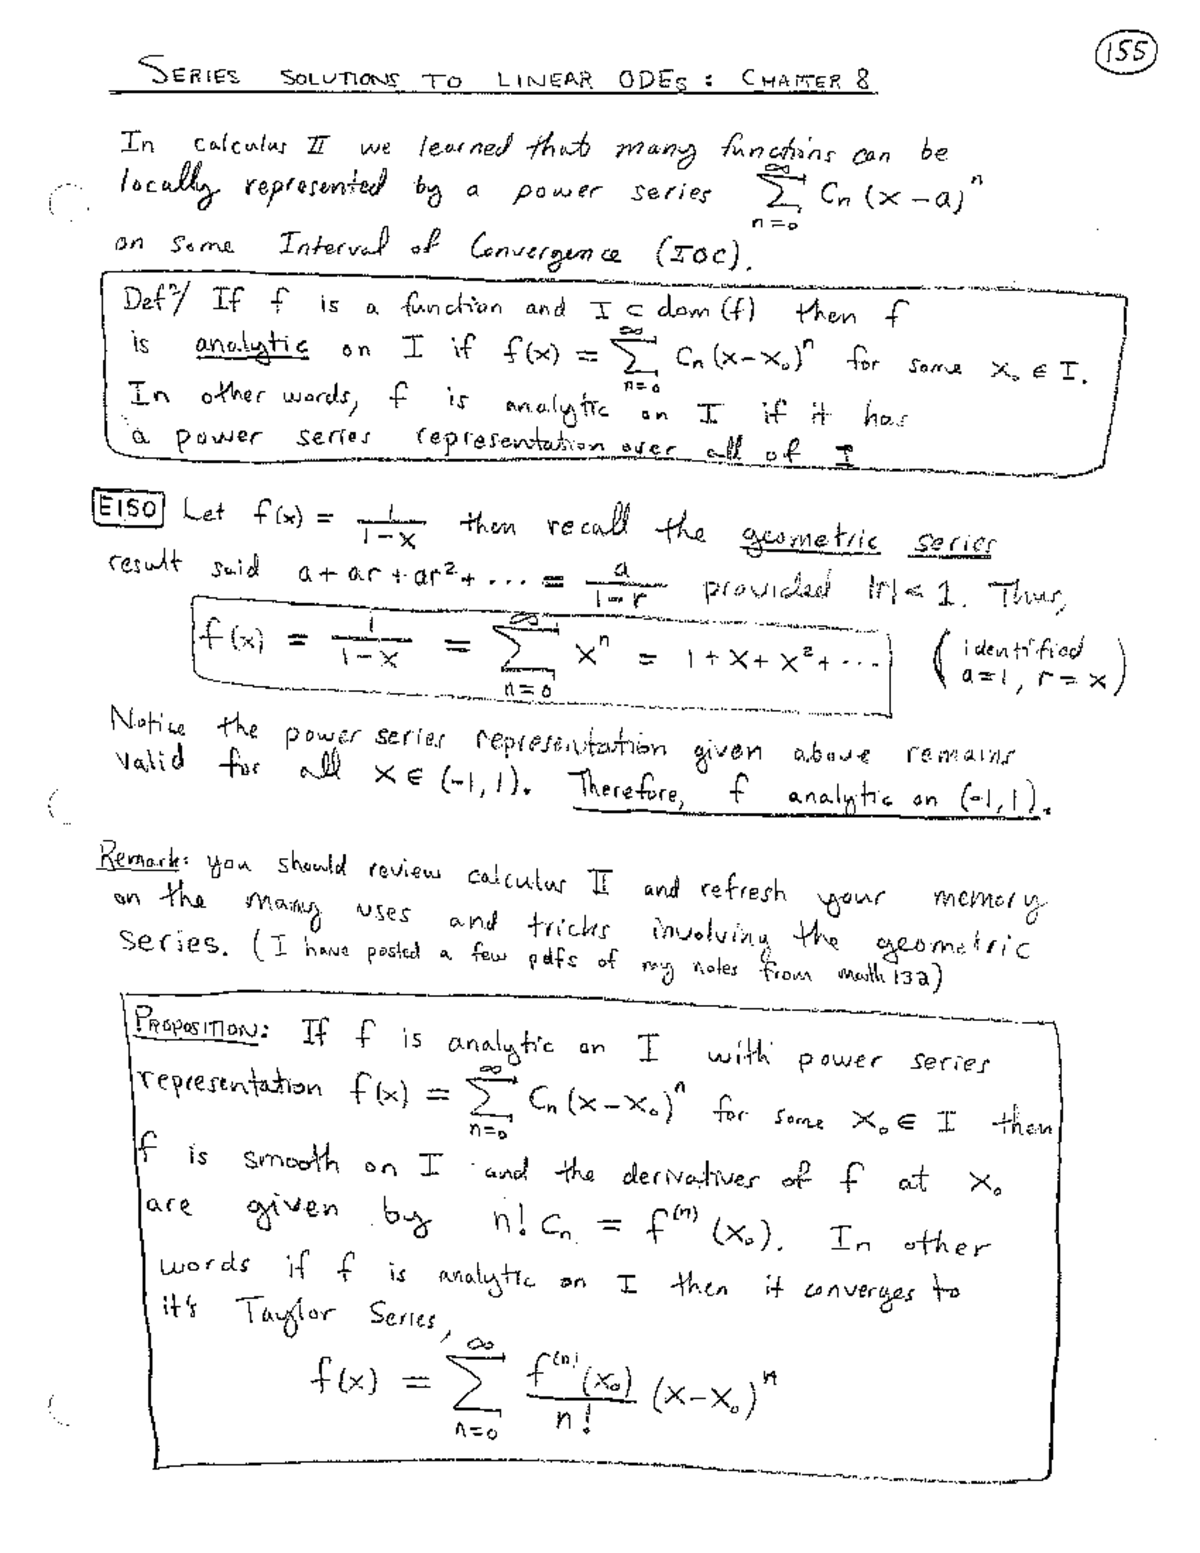 155
SERIES SOLUTIONS TO LINEAR ODEs : CHAPTER 8
In calculus II we learned that many functions can be
locally represented by a power series \sum_{n=0}^{\infty} C_n (x-a)^n
on some Interval of Convergence (IOC).
Def^n/ If f is a function and I ⊂ dom(f) then f
is analytic on I if f(x) = \sum_{n=0}^{\infty} C_n (x-x_0)^n for some x_0 ∈ I.
In other words, f is analytic on I if it has
a power series representation over all of I
E150 Let f(x) = \frac{1}{1-x} then recall the geometric series
result said a + ar + ar^2 + ... = \frac{a}{1-r} provided |r| < 1. Thus,
f(x) = \frac{1}{1-x} = \sum_{n=0}^{\infty} x^n = 1 + x + x^2 + ... (identified a=1, r=x)
Notice the power series representation given above remains
valid for all x ∈ (-1,1). Therefore, f analytic on (-1,1).
Remark: you should review calculus II and refresh your memory
on the many uses and tricks involving the geometric
series. (I have posted a few pdfs of my notes from math 132)
PROPOSITION: If f is analytic on I with power series
representation f(x) = \sum_{n=0}^{\infty} C_n (x-x_0)^n for some x_0 ∈ I then
f is smooth on I and the derivatives of f at x_0
are given by n! C_n = f^{(n)}(x_0). In other
words if f is analytic on I then it converges to
it's Taylor Series,
f(x) = \sum_{n=0}^{\infty} \frac{f^{(n)}(x_0)}{n!} (x-x_0)^n